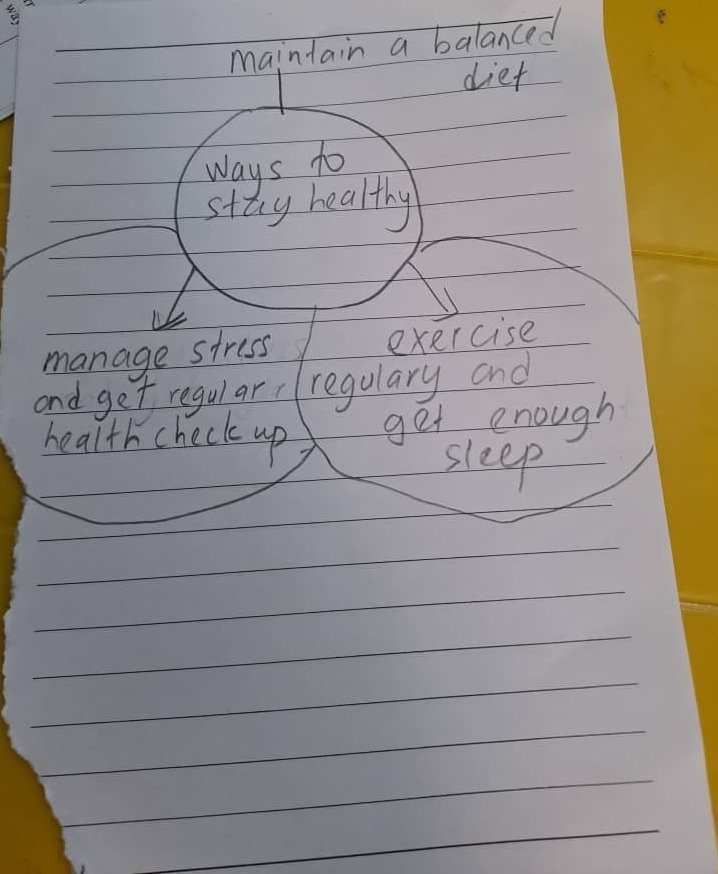 way
maintain a balanced
diet
ways to
stay healthy
manage stress
and get regular
health check up
exercise
regulary and
get enough
sleep